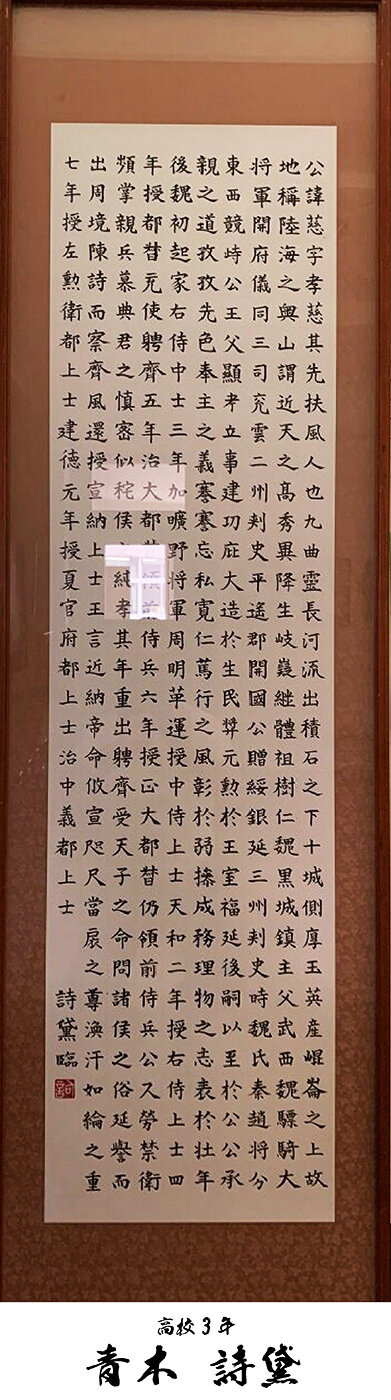 公諱慈字孝慈其先扶風人也九曲靈長河流出積石之下十城側厚玉英産崐崙之上故
地稱陸海之奥山謂近天之髙秀異降生岐嶷継體祖樹仁魏黒城鎮主父武西魏驃騎大
將軍開府儀同三司兖雲二州刾史平遥郡開國公贈綏銀延三州刾史時魏氏秦趙將分
東西競峙公王父顯考立事建功庇大造於生民奨元勲於王室福延後嗣以至於公公承
親之道孜孜先色奉主之義謇謇忘私寛仁篤行之風彰於弱操成務理物之志表於壮年
後魏初起家右侍中士三年加曠野將軍周明革運授中侍上士天和二年授右侍上士四
年授都督充使聘齊五年治大都督領前侍兵六年授正大都督仍領前侍兵公久勞禁衛
頻掌親兵慕典君之慎密似秺侯之純孝其年重出聘齊受天子之命問諸侯之俗延譽而
出周境陳詩而察齊風還授宣納上士王言近納帝命攸宣咫尺當扆之尊渙汗如綸之重
七年授左勲衛都上士建徳元年授夏官府都上士治中義都上士 詩黛臨
高校3年
青木 詩黛